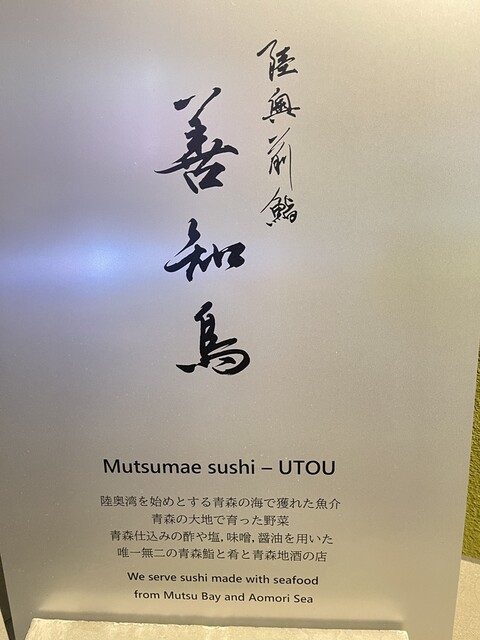 陸奥前鮨
善知鳥
Mutsumae sushi – UTOU
陸奥湾を始めとする青森の海で獲れた魚介
青森の大地で育った野菜
青森仕込みの酢や塩,味噌,醤油を用いた
唯一無二の青森鮨と肴と青森地酒の店
We serve sushi made with seafood
from Mutsu Bay and Aomori Sea